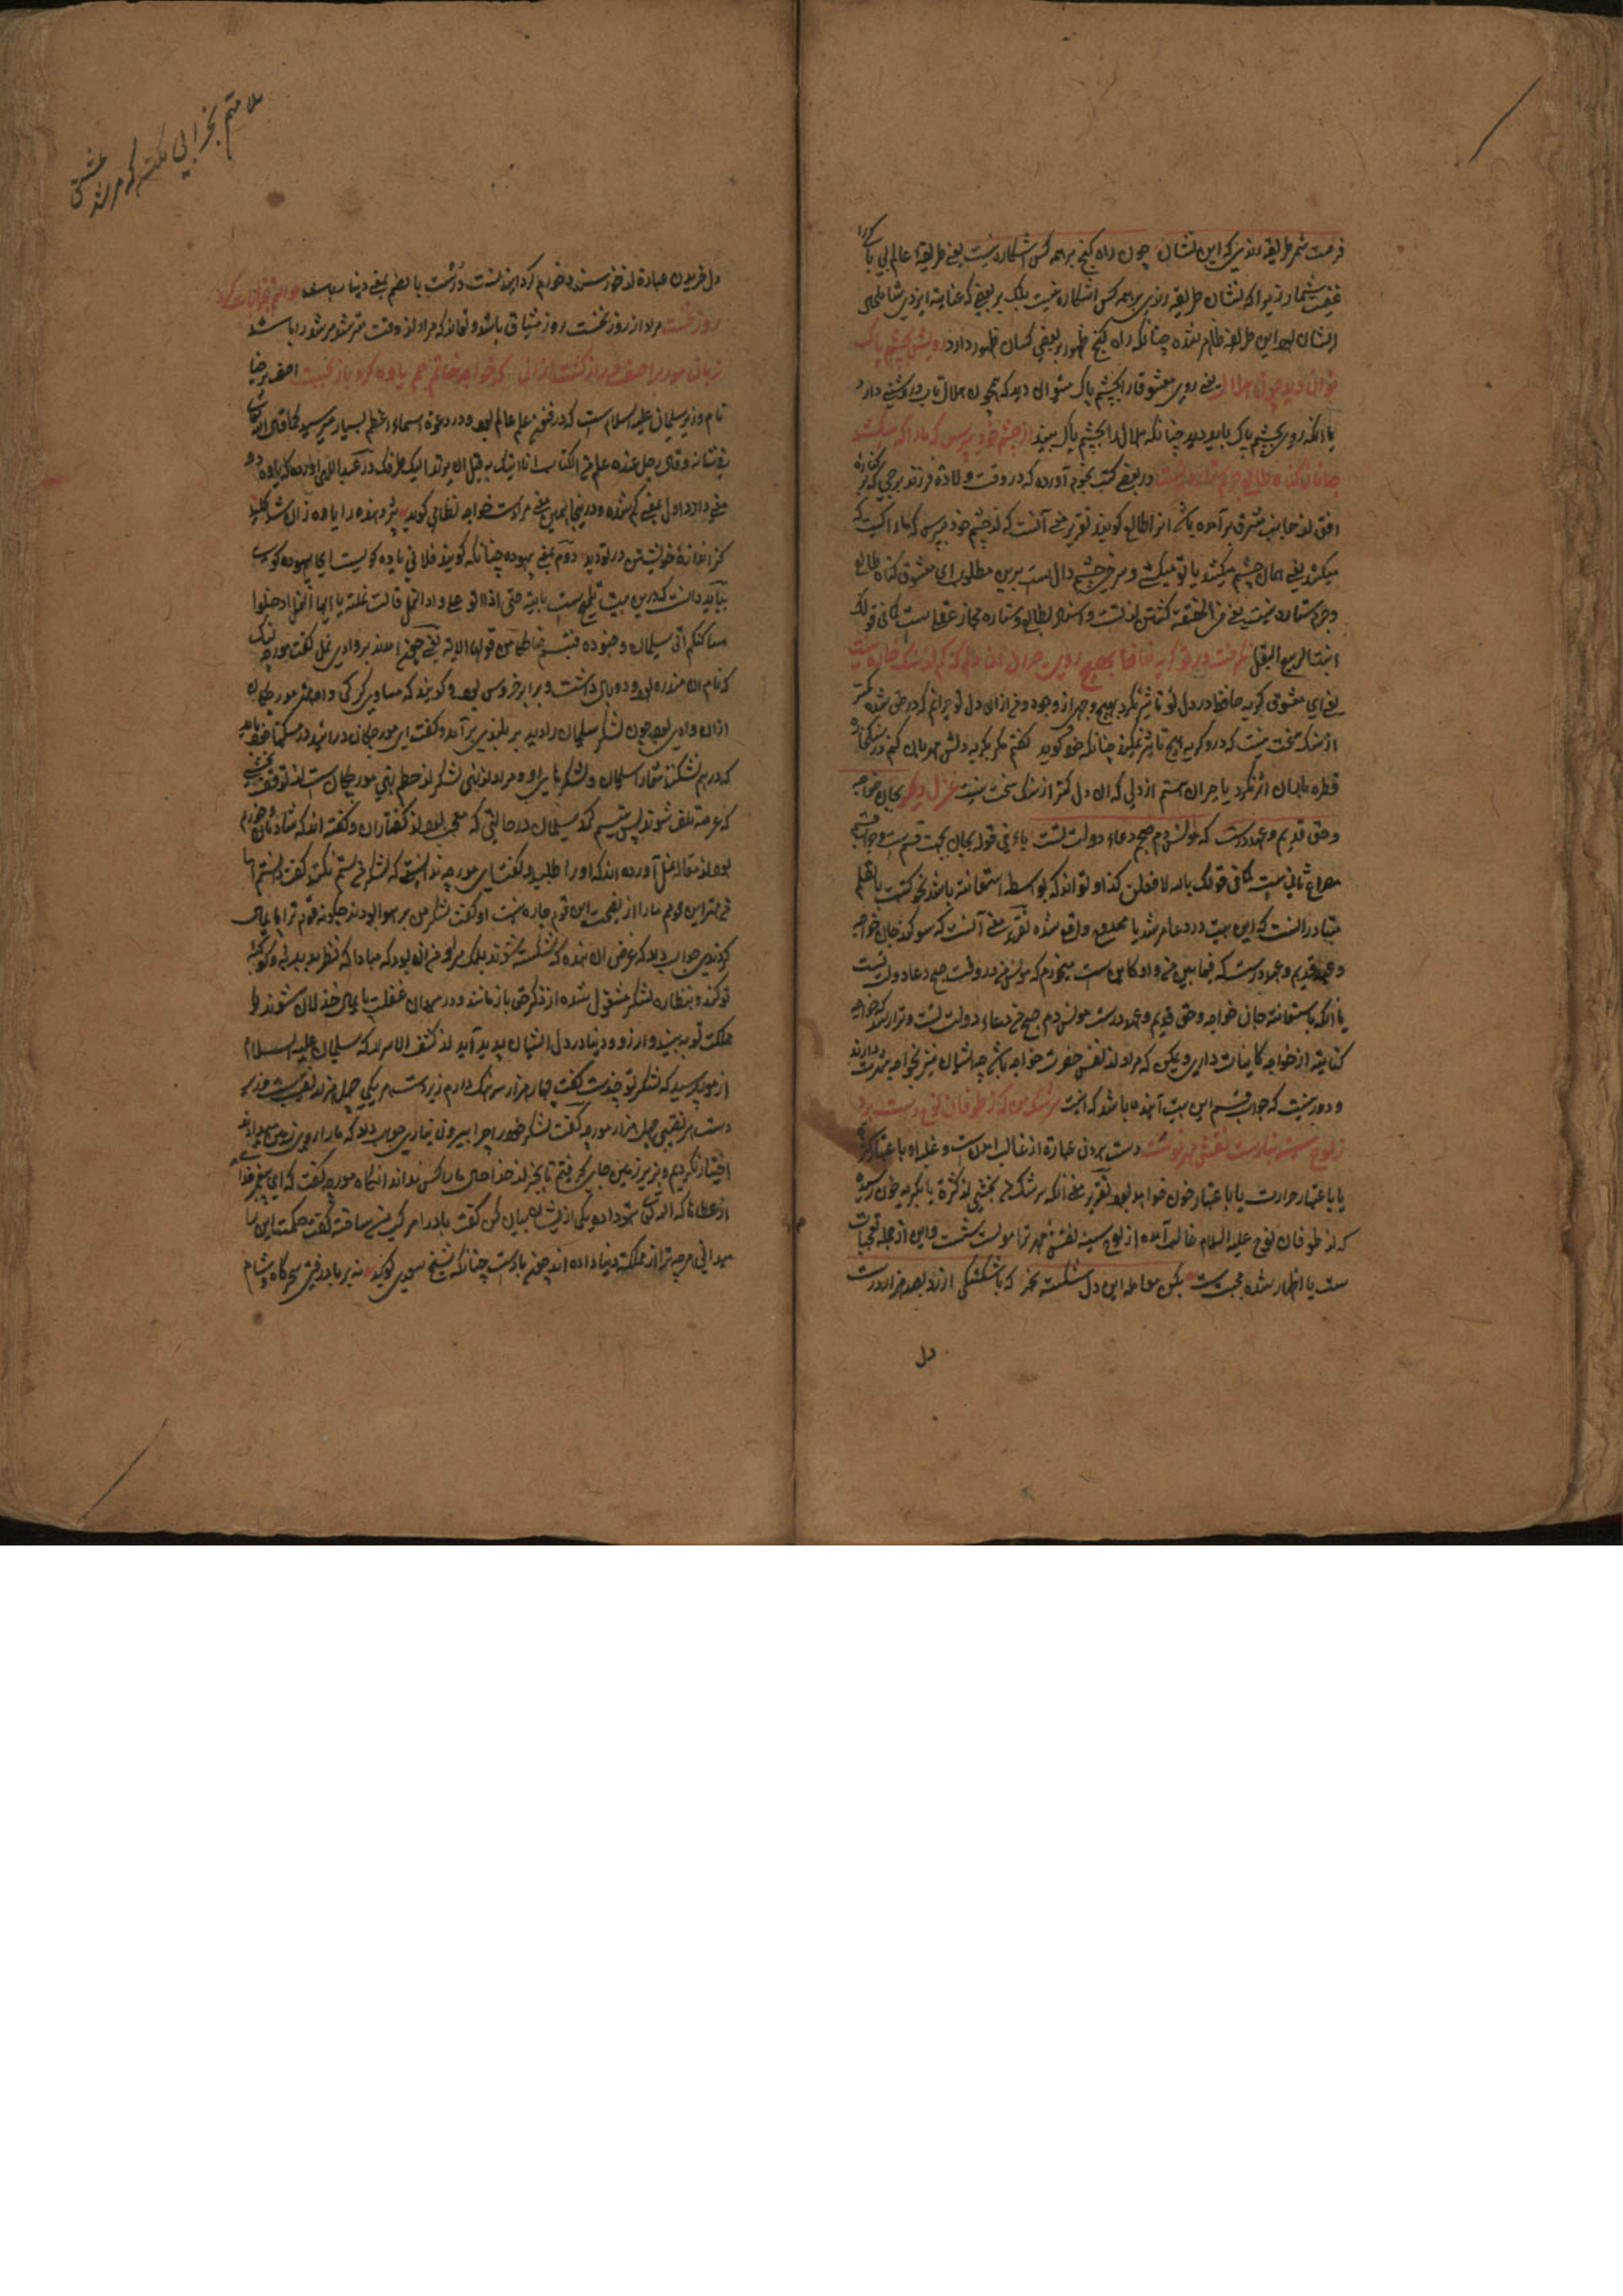 فرصت شمر طریقه رندی که این نشان چون راه گنج بر همه کس آشکاره نیست یعنی طریقهٔ عالم بی باکی را
غنیمت شمار زیرا که نشان طریقه رندی بر همه کس آشکاره نیست بلکه بر بعضی که عنایت ایزدی شامل حال
ایشان بود این طریقه ظاهر شده چنانکه راه گنج ظهور بر بعضی کسان ظهور دارد رویش بچشم پاک
توان دید چون هلال یعنی روی معشوق را بچشم پاک میتوان دید که همچون هلال تاب و روشنی دارد
یا آنکه روی بچشم پاک باید دید چنانکه هلال را بچشم پاک بینند از چشم خود بپرس که ما را که میکشد
جانا گناه طالع و جرم ستاره نیست در بعضی کتب نجوم آورده که در وقت ولادة فرزند برجی که بر کنارهٔ
افق از جانب مشرق بر آمده باشد آنرا طالع گویند تقریر معنی آنست که از چشم خود بپرس که ما را کیست که
میکشد یعنی همان چشم میکشد یا تو میکشی و سرخی چشم دال است برین مطلوب ای معشوق گناه طالع
و جرم ستاره نیست یعنی فی الحقیقة کشتن از تست و اسناد بطالع و ستاره مجاز عقلی است کما فی قولک
انبت الربیع البقل نگرفت در تو گریه حافظ بهیچ روی حیران آن دلم که کم از سنگ خاره نیست
یعنی ای معشوق گریه حافظ در دل تو تاثیر نکرد بهیچ وجهی از وجوه و من از آن دل تو حیرانم که در حق شده کمتر
از سنگ سخت نیست که درو گریه هیچ تاثیر نمیکند چنانکه خود گوید گفتم مگر بگریه دلش مهربان کنم در سنگ خاره
قطره باران اثر نکرد یا حیران هستم از دلی که آن دل کمتر از سنگ سخت نیست غزل دیگر بجان خواجه
و حق قدیم و عهد درست که مونس دم صبحم دعاء دولت تست باء فی قوله بجان بجهت قسم است و جواب قسم
مصراع ثانی است کما فی قولک بالله لافعلن کذا و تواند که بواسطه استعانة باشد نحو کتبت بالقلم
متبادر آنست که این بیت در دعاء مرشد یا ممدوح واقع شده تقریر معنی آنست که سوگند جان خواجه
و عهد قدیم و عهد درست که فیما بین من و او کاین است میخورم که مونس من در وقت صبح دعاء دولت تست
یا آنکه باستعانة جان خواجه و حق قدیم و عهد درست مونس دم صبح من دعاء دولت تست و تواند که خواجه
کنایة از خواجه کاینات دارند و ممکن که مراد از نفس حضرت خواجه باشد چه ایشان نیز بخواجه شهرت دارند
و دور نیست که جواب قسم این بیت آینده باشد که اینست سرشک من که ز طوفان نوح دست برد
ز لوح سینه نیارست نقش مهر تو شست دست بردن عبارة از غالب آمدن است و غلبه او باعتبار کثرة
یا باعتبار حرارت یا باعتبار خون خواهد بود تقریر معنی آنکه سرشک من بجنبشی از کثرة یا بگریه خون رسیده
که از طوفان نوح علیه السلام غالب آمده از لوح سینه نقش مهر ترا نتوانست شست و این از جمله تعجبات
ست یا اظهار شده محبت ست بکن معامله این دل شکسته بخر که با شکستگی ارزد بصد هزار درست
دل
ملامتم بخرابی مکن که مرشد عشق
دل خریدن عبارة از خورسند و خورم کردن اینست درست بالضم بمعنی دینار باشد حوالتم بخرابات کرد
روز نخست مراد از روز نخست روز میثاق باشد و تواند که مراد از وقت مرشد مرشد را باشد
زبان مور بر آصف دراز گشت از آن که خواجه خاتم جم یاوه کرد و باز نجست آصف برخیا
نام وزیر سلیمان علیه السلام است که در فنون علم عالم بود و در دعوة اسماء اعظم بسیار میرسید کما قال الله تعالی
فی شانه وقال رجل عنده علم من الکتاب انا اتیک به قبل ان یرتد الیک طرفک در عبد اللهی آورده که یاوه دو
معنی دارد اول بمعنی گم شده و درینجا همین معنی مرادست خواجه نظامی گوید پژوهنده را یاوه زان شد کلید
کز اندازهٔ خویشتن در تو دید دوم بمعنی بیهوده چنانکه گویند فلانی یاوه گویست ای بیهوده گوی
بباید دانست که درین بیت تلمیح است بآیة حتی اذا اتو علی واد النمل قالت نملة یا ایها النمل ادخلوا
مساکنکم ای سلیمان و جنوده فتبسم ضاحکا من قولها الایه یعنی چون آمدند بر وادی نمل گفت مورچه لنگ
که نام آن منذره بود و دو بال داشت و برابر خروس بود و گویند که مساوی گرگی و او مهتر مورچگان
ازان وادی بود چون لشکر سلیمان را دید بر بلندی بر آمد و گفت ای مورچگان در آیید در مسکنهای خود
که در هم نشکند شما را سلیمان و لشکرهای او و مراد از این لشکر از حطم بنی مورچگان ست از توقف
که عرصه تلف شوند پس متبسم شد سلیمان در حالتی که متعجب بود از گفتار آن و گفته اند که شادمان و خورم
بود از مقاله نمل آورده اند که او را طلبید و گفت ای مورچه ندانستی که لشکر من ستم نکند گفت دانستم اما
من مهتر این قومم مارا از نصیحت این قوم چاره نیست او گفت لشکر من بر هوا بودند چگونه قوم ترا پایمال
کردندی جواب داد که غرض آن نبوده که شکسته شوند بلکه مراد من آن بود که مبادا که نظر بدبدبه و کوکبه
تو کنند و بنظاره لشکر مشغول شده از ذکر حق باز مانند و در میدان غفلت پایمال خذلان شوند یا
مملکت تو به بینند و آرزوء دنیا در دل ایشان پدید آید از کشف الاسرار که سلیمان علیه السلام
از مور پرسید که لشکر تو چندست گفت چهار هزار سرهنگ دارم زیردست هر یکی چهل هزار نقیب ست و زیر
دست هر نقیبی چهل هزار مورچه گفت لشکر خود را چرا بیرون نیاری جواب داد که ما را روی زمین میدادند
اختیار نکردیم و زیر زمین جای گرفتیم تا بجز از خدا حال ما را کس نداند آنگاه مورچه گفت که ای پیغمبر خدا
از عطاها که الله تعالی بتو داده یکی ازیشان بیان کن گفت باد را مرکب من ساخته گفت حکمت این را
میدانی هرچه ترا از مملکت دنیا داده اند چون بادست چنانکه شیخ سعدی گوید نه بر باد رفتی سحرگاه و شام